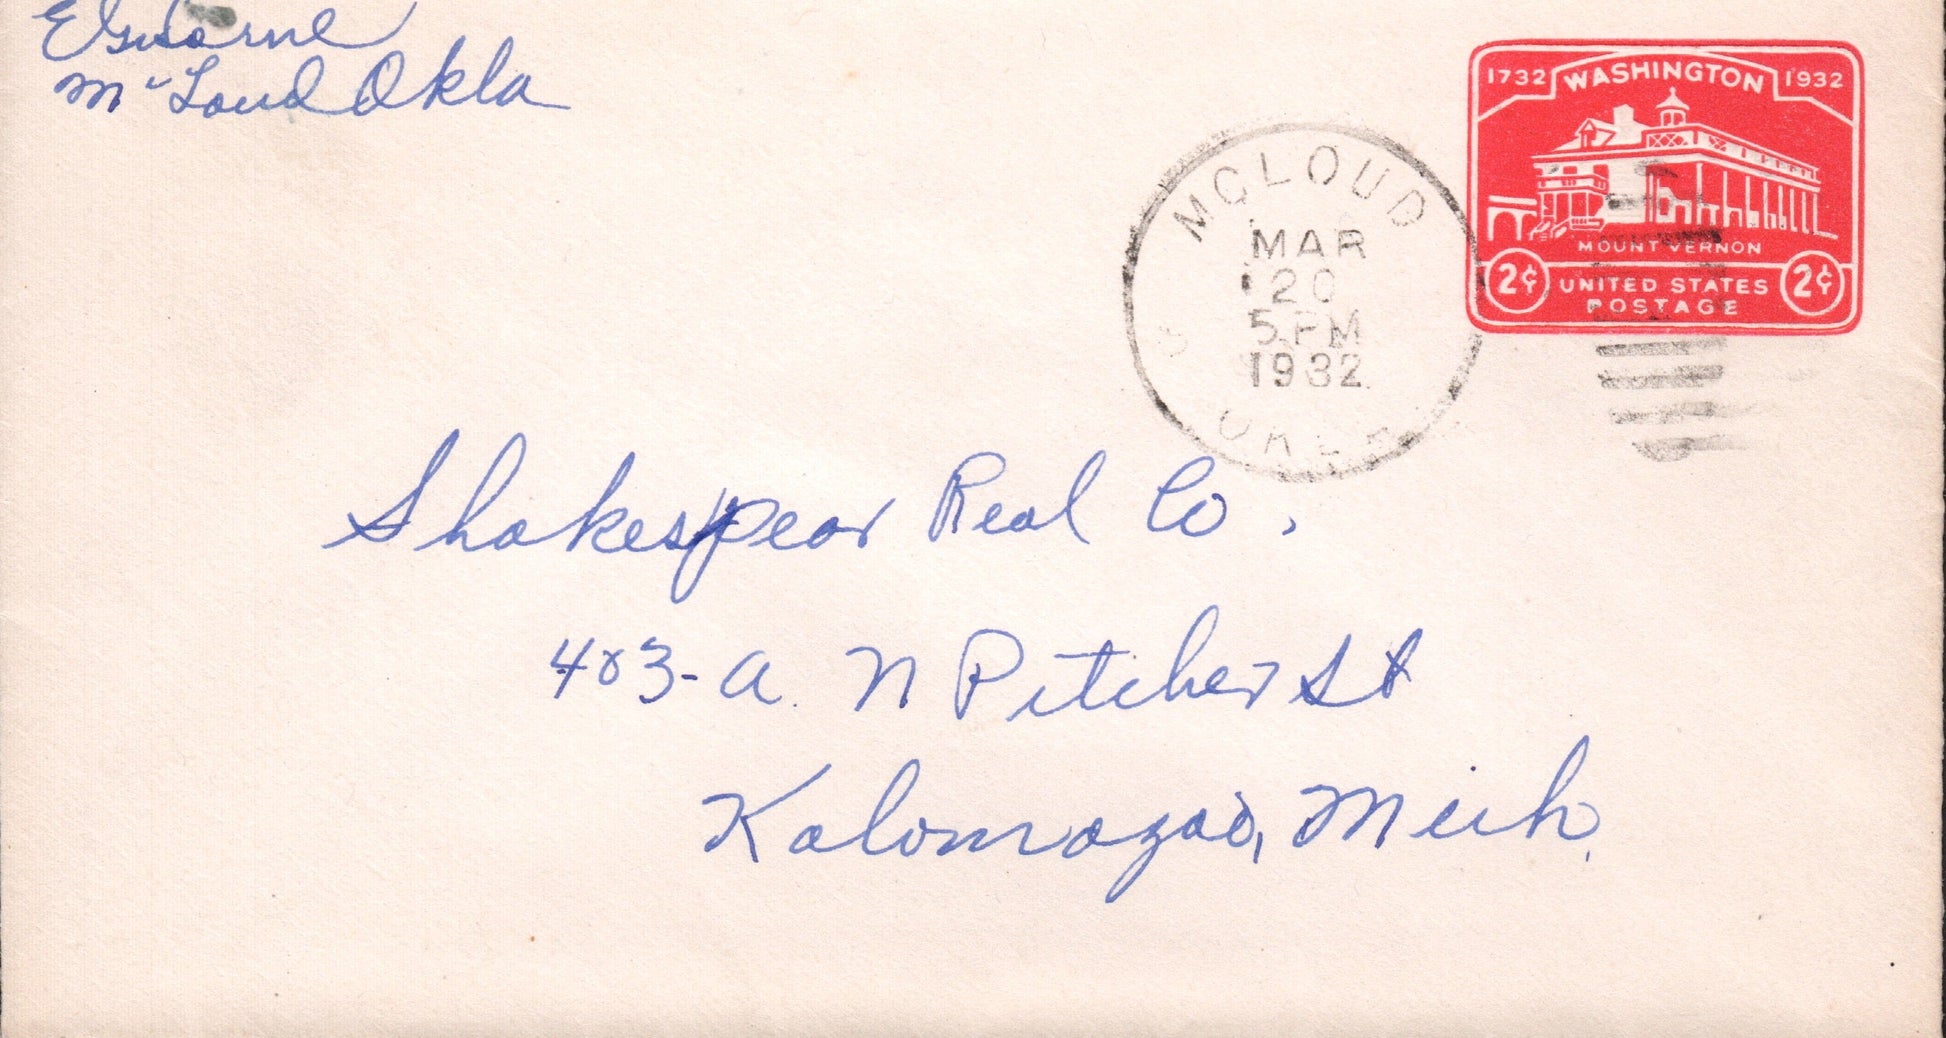 McLoud Okla
1732 WASHINGTON 1932
MOUNT VERNON
2¢ UNITED STATES 2¢
POSTAGE
MCLOUD
MAR
20
5 PM
1932
OKLA
Shakespear Real Co.
403-A. N Pitcher St
Kalamazoo, Mich.